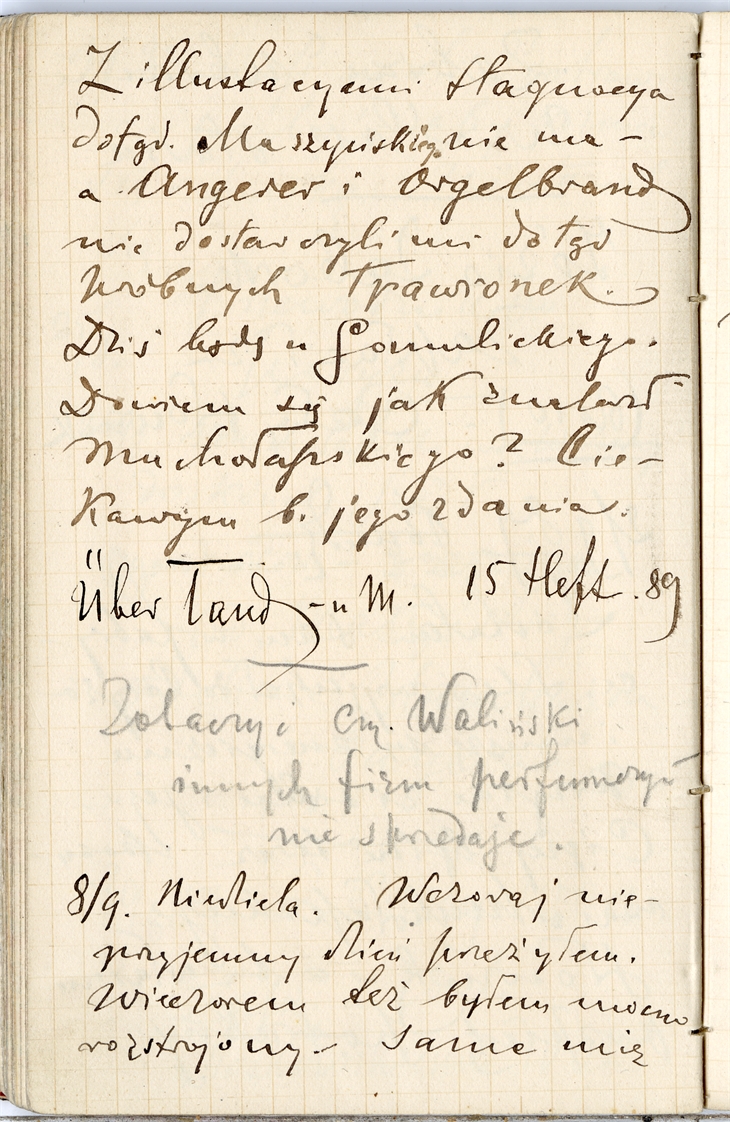 Z illustacyami stagnacya
dotąd. Maszyńskiego nie ma -
a Angerer i Orgelbrand
nie dostarczyli mi dotąd
próbnych trawionek.
Dziś będę u Gomulickiego.
Dowiem się jak znalazł
Muchołapskiego? Cie-
kawym b. jego zdania.
Über Land - u M. 15 Heft. 89
Zobaczyć czy. Waliński
innych firm perfumeryi
nie sprzedaje.
8/9. Niedziela. Wczoraj nie-
przyjemny dzień przeżyłem.
Wieczorem też byłem mocno
rozstrojony - Same nie